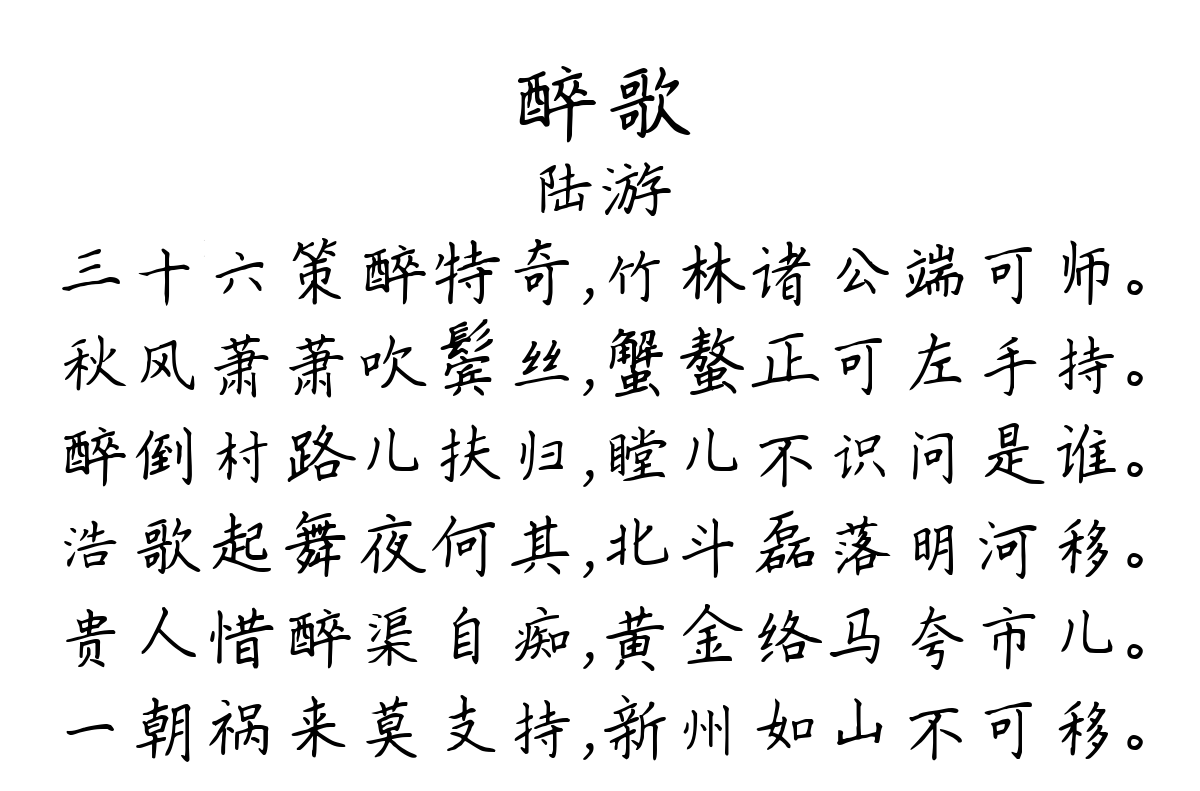 醉歌
陆游
三十六策醉特奇,竹林诸公端可师。
秋风萧萧吹鬓丝,蟹螯正可左手持。
醉倒村路儿扶归,瞠儿不识问是谁。
浩歌起舞夜何其,北斗磊落明河移。
贵人惜醉渠自痴,黄金络马夸市儿。
一朝祸来莫支持,新州如山不可移。